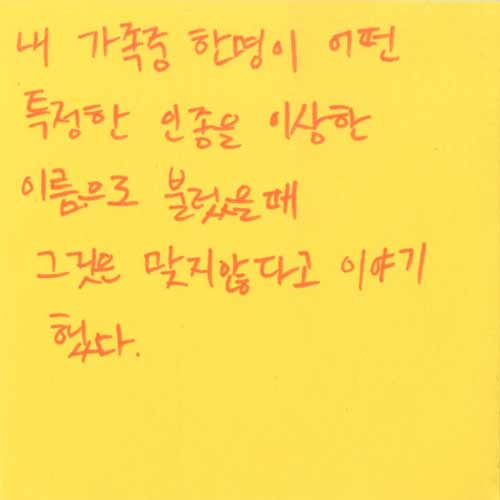 내 가족중 한명이 어떤
특정한 인종을 이상한
이름으로 불렀을때
그것은 맞지않다고 이야기
했다.